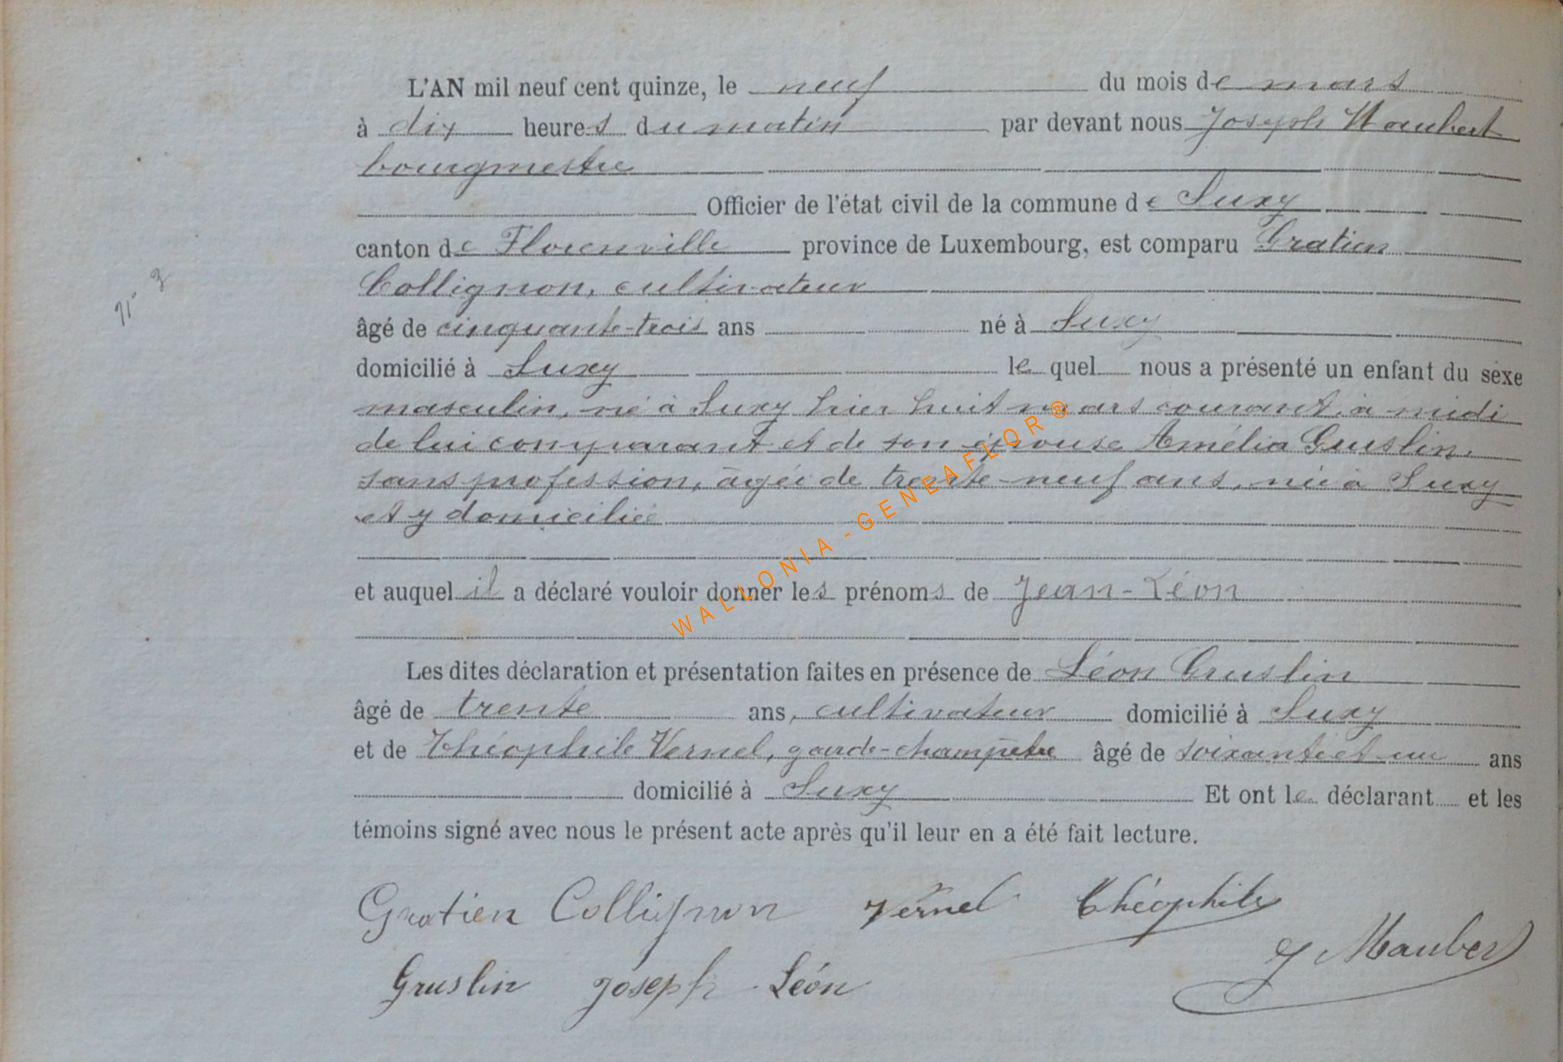 L'AN mil neuf cent quinze, le neuf du mois de mars
à dix heures du matin par devant nous Joseph Maubert
bourgmestre
Officier de l'état civil de la commune de Suxy
canton de Florenville province de Luxembourg, est comparu Gratien
Collignon, cultivateur
âgé de cinquante-trois ans né à Suxy
domicilié à Suxy lequel nous a présenté un enfant du sexe
masculin, né à Suxy hier huit mars courant, à midi
de lui comparant et de son épouse Amélia Gruslin,
sans profession, âgée de trente-neuf ans, née à Suxy
et y domiciliée
et auquel il a déclaré vouloir donner les prénoms de Jean-Léon
Les dites déclaration et présentation faites en présence de Léon Gruslin
âgé de trente ans, cultivateur domicilié à Suxy
et de Théophile Vernel, garde-champêtre âgé de soixante et un ans
domicilié à Suxy Et ont le déclarant et les
témoins signé avec nous le présent acte après qu'il leur en a été fait lecture.
Gratien Collignon Vernel Théophile
J Maubert
Gruslin Joseph Léon
WALLONIA-GENEAFLOR®